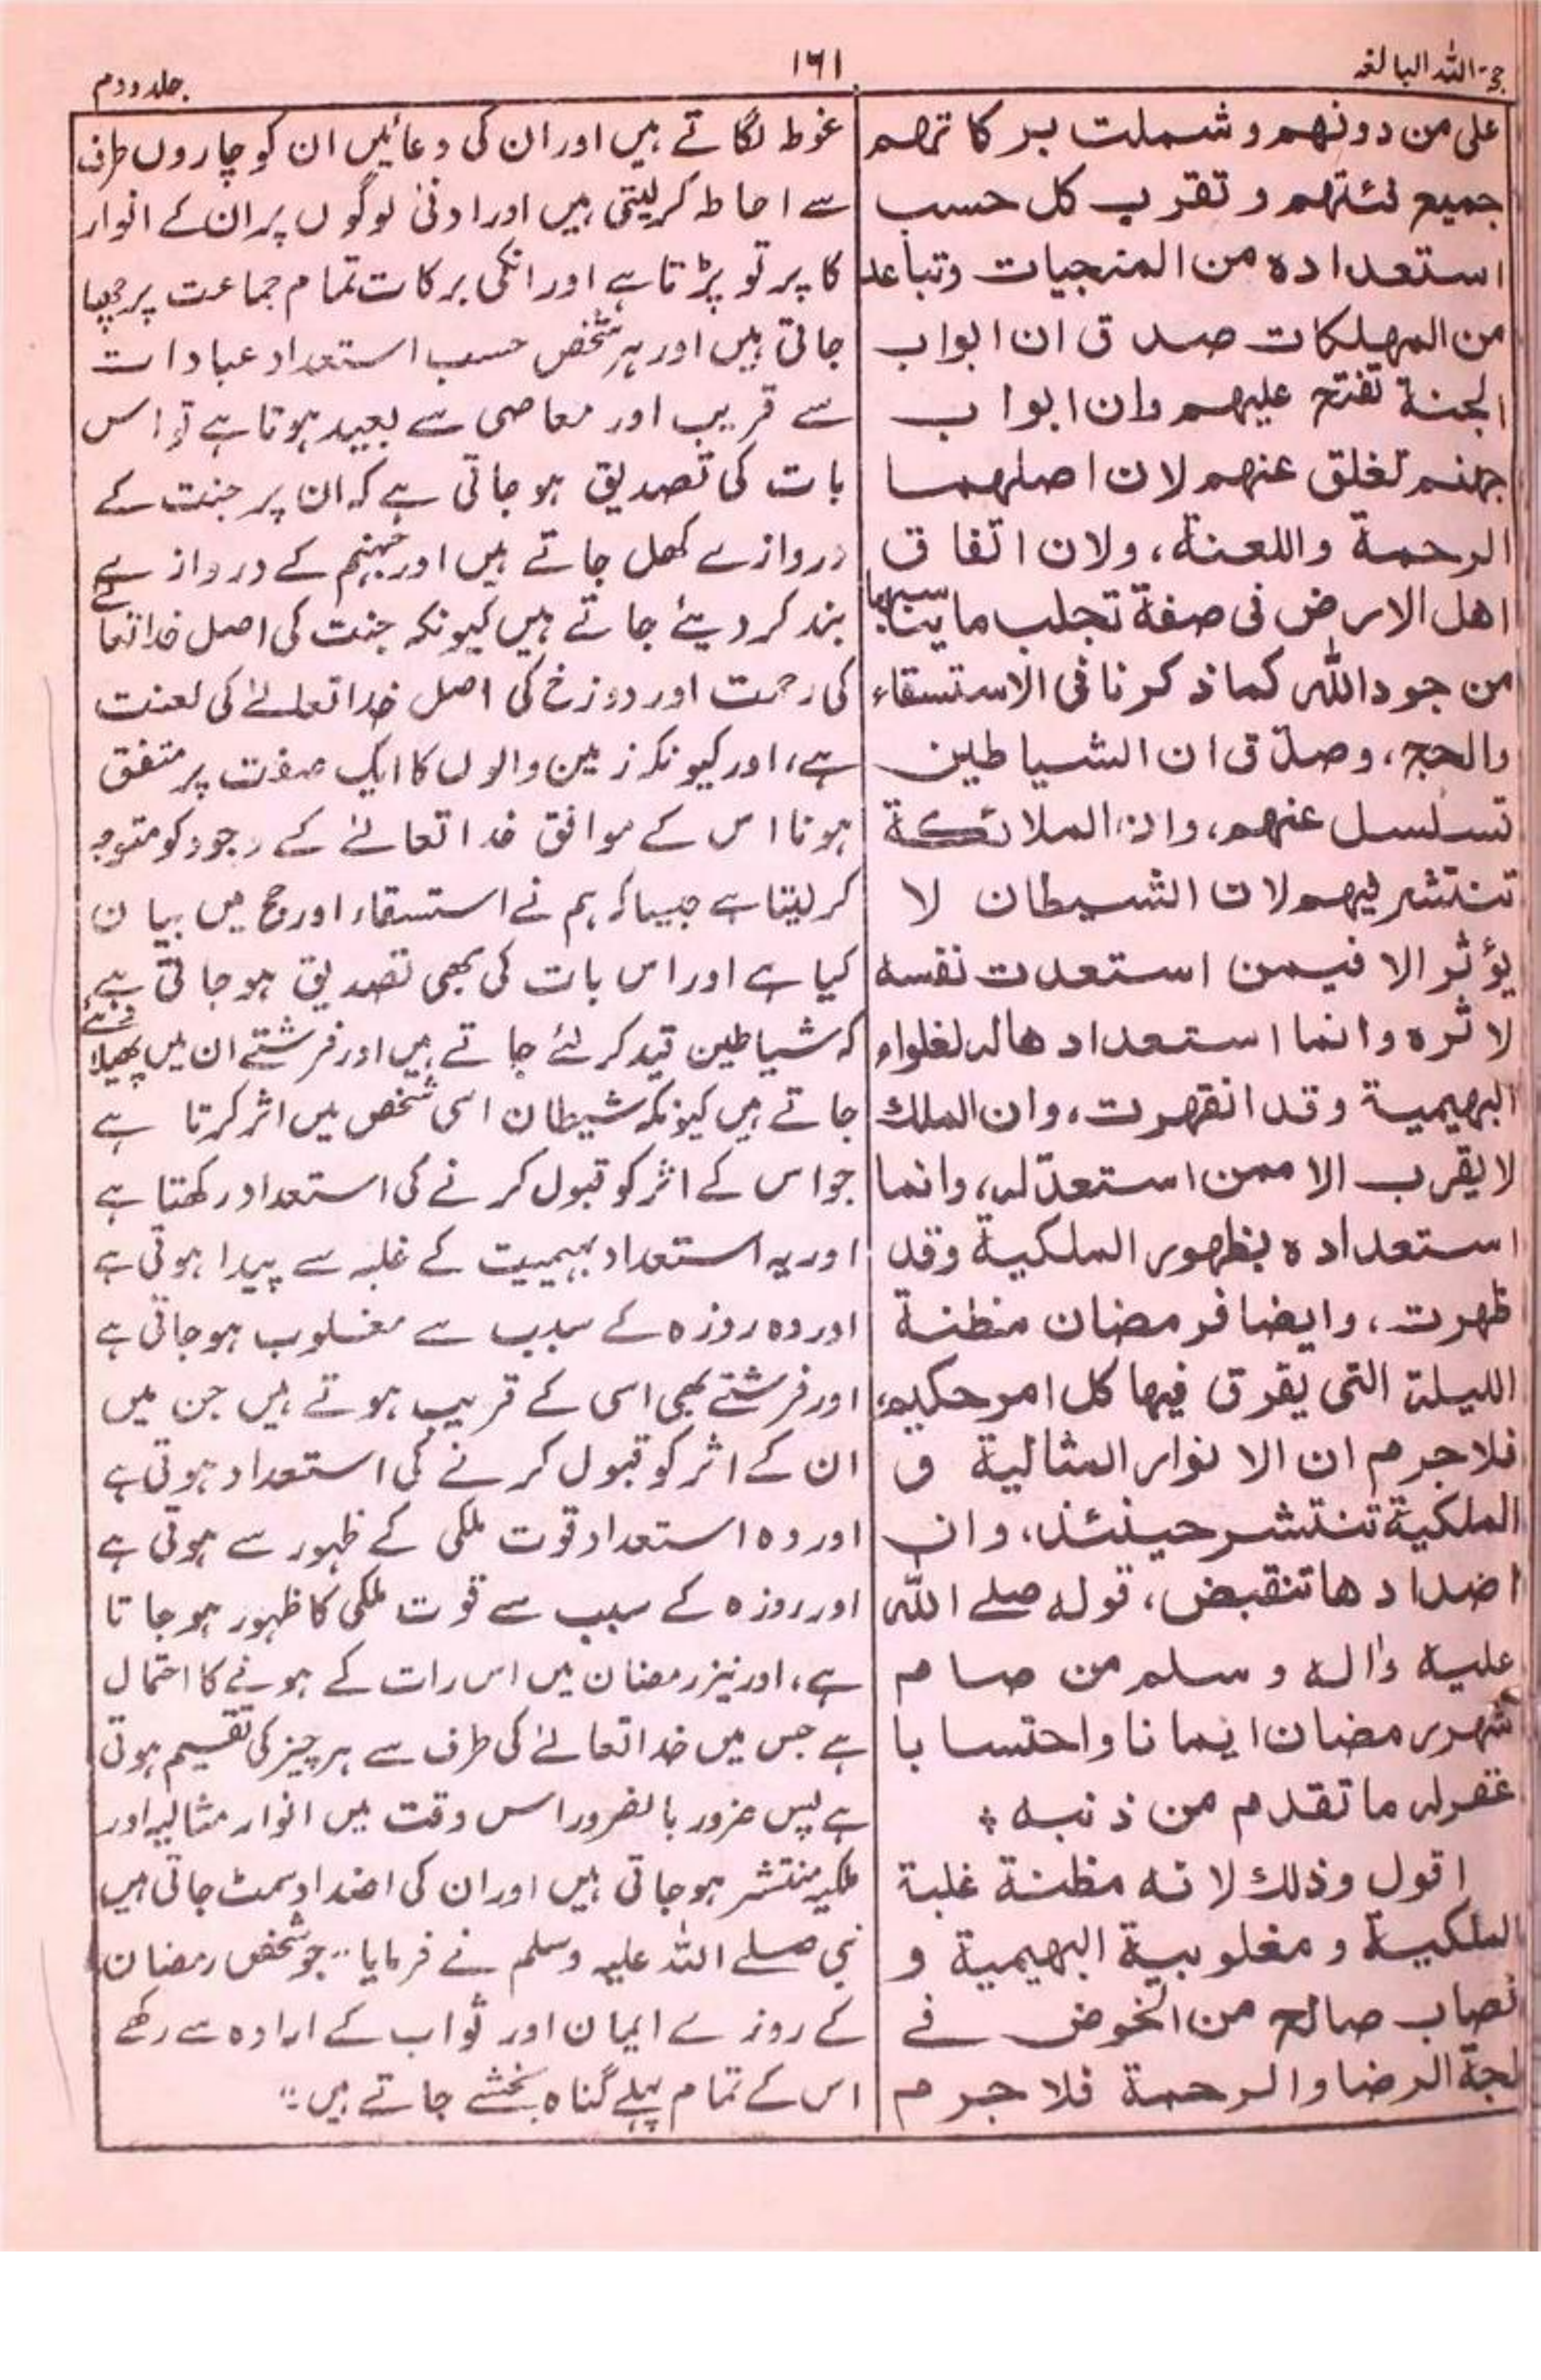 حجۃ اللہ البالغہ
۱۶۱
جلد دوم
على من دونهم وشملت بركاتهم
جميع فئتهم وتقرب كل حسب
استعداده من المنجيات وتباعد
من المهلكات صدق ان ابواب
الجنة تفتح عليهم وان ابواب
جهنم تغلق عنهم لان اصلهما
الرحمة واللعنة، ولان اتفاق
اهل الارض فى صفة تجلب ما يناسبها
من جود الله كما ذكرنا فى الاستسقاء
والحج، وصدق ان الشياطين
تسلسل عنهم، وان الملائكة
تنتشر فيهم لان الشيطان لا
يؤثر الا فيمن استعدت نفسه
لاثره وانما استعدادها له لغلواء
البهيمية وقد انقهرت، وان الملك
لا يقرب الا ممن استعد له، وانما
استعداده بظهور الملكية وقد
ظهرت، وايضا فرمضان مظنة
الليلة التى يفرق فيها كل امر حكيم،
فلا جرم ان الانوار المثالية و
الملكية تنتشر حينئذ، وان
اضدادها تنقبض، قوله صلے الله
عليه واله وسلم من صام
شهر رمضان ايمانا واحتسابا
غفر له ما تقدم من ذنبه ٭
اقول وذلك لانه مظنة غلبة
الملكية ومغلوبية البهيمية و
نصاب صالح من الخوض فے
لجة الرضا والرحمة فلا جرم
غوطہ لگاتے ہیں اور ان کی دعائیں ان کو چاروں طرف
سے احاطہ کرلیتی ہیں اور ادنیٰ لوگوں پر ان کے انوار
کا پرتو پڑتا ہے اور انکی برکات تمام جماعت پر چھا
جاتی ہیں اور ہر شخص حسب استعداد عبادات
سے قریب اور معاصی سے بعید ہوتا ہے تو اس
بات کی تصدیق ہو جاتی ہے کہ ان پر جنت کے
دروازے کھل جاتے ہیں اور جہنم کے دروازے
بند کر دیئے جاتے ہیں کیونکہ جنت کی اصل خداتعالےٰ
کی رحمت اور دوزخ کی اصل خداتعالےٰ کی لعنت
ہے، اور کیونکہ زمین والوں کا ایک صفت پر متفق
ہونا اس کے موافق خداتعالےٰ کے وجود کو متوجہ
کر لیتا ہے جیسا کہ ہم نے استسقاء اور حج میں بیان
کیا ہے اور اس بات کی بھی تصدیق ہو جاتی ہے
کہ شیاطین قید کر لئے جاتے ہیں اور فرشتے ان میں پھیلا دیئے
جاتے ہیں کیونکہ شیطان اسی شخص میں اثر کرتا ہے
جو اس کے اثر کو قبول کرنے کی استعداد رکھتا ہے
اور یہ استعداد بہیمیت کے غلبہ سے پیدا ہوتی ہے
اور وہ روزہ کے سبب سے مغلوب ہو جاتی ہے
اور فرشتے بھی اسی کے قریب ہوتے ہیں جن میں
ان کے اثر کو قبول کرنے کی استعداد ہوتی ہے
اور وہ استعداد قوت ملکی کے ظہور سے ہوتی ہے
اور روزہ کے سبب سے قوت ملکی کا ظہور ہو جاتا
ہے، اور نیز رمضان میں اس رات کے ہونے کا احتمال
ہے جس میں خداتعالےٰ کی طرف سے ہر چیز کی تقسیم ہوتی
ہے پس ضرور بالضرور اس وقت میں انوار مثالیہ اور
ملکیہ منتشر ہو جاتی ہیں اور ان کی اضداد سمٹ جاتی ہیں
نبی صلے اللہ علیہ وسلم نے فرمایا "جو شخص رمضان
کے روزے ایمان اور ثواب کے ارادہ سے رکھے
اس کے تمام پہلے گناہ بخشے جاتے ہیں"